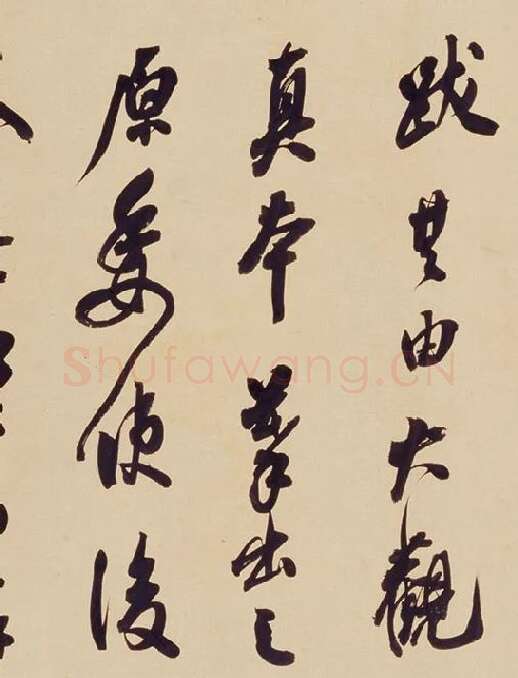 跋其由大觀
真本摹出之
原委使後
Shufawang.CN